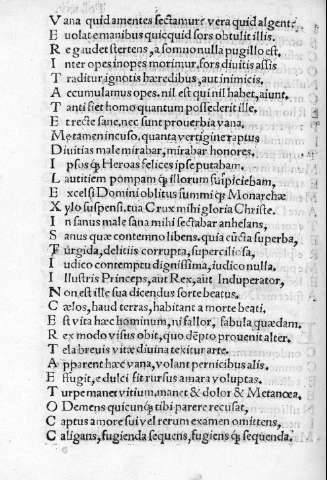 Vana quid amentes sectamur? vera quid algent?
Euolat e manibus quicquid sors obtulit illis.
Re gaudet stertens, a somno nulla pugillo est.
Inter opes inopes morimur, sors diuitis assis
Traditur ignotis hæredibus, aut inimicis.
Accumulamus opes. nil est qui nil habet, aiunt.
Tanti fiet homo quantum possederit ille.
Et recte sane. nec sunt prouerbia vana.
Me tamen incuso. quanta vertigine raptus
Diuitias male mirabar, mirabar honores.
Ipsosq́ Heroas felices ipse putabam.
Lautitiem pompam q́ illorum suspiciebam,
Excelsi Domini oblitus summi q́ Monarchæ
Xylo suspensi. tua Crux mihi gloria Christe.
In sanus male sana mihi sectabar anhelans,
Sanus quæ contemno libens. quia cũcta superba,
Turgida, delitiis corrupta, superciliosa,
Iudico contemptu dignissima, iudico nulla.
Illustris Princeps, aut Rex, aut Induperator,
Non est ille sua dicendus sorte beatus.
Cælos, haud terras, habitant a morte beati.
Est vita hæc hominum, ni fallor, fabula quædam.
Rex modo visus obit, quo dẽpto prouenit alter.
Tela breuis vitæ diuina texitur arte.
Apparent hæc vana, volant pernicibus alis.
Effugit, e dulci fit rursus amara voluptas.
Turpe manet vitium, manet & dolor & Metancea.
O Demens quicunq́ tibi parere recusat,
Captus amore sui vel rerum examen omittens,
Caligans, fugienda sequens, fugiens q́ sequenda.